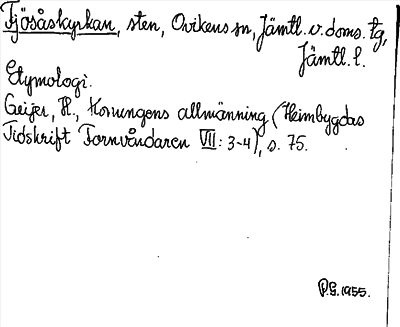 Fjösåskyrkan, sten, Ovikens sn, Jämtl. v. doms. tg,
Jämtl. l.
Etymologi.
Geijer, H., Konungens allmänning (Heimbygdas
Tidskrift Fornvårdaren VII: 3-4), s. 75.
P.G. 1955.